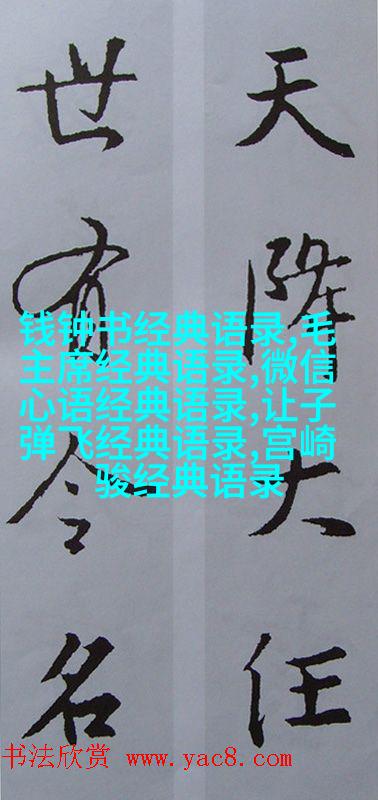 天降大任
世有令名
钱钟书经典语录,毛
主席经典语录,微信
心语经典语录,让子
弹飞经典语录,宫崎
骏经典语录
书法欣赏 www.yac8.com